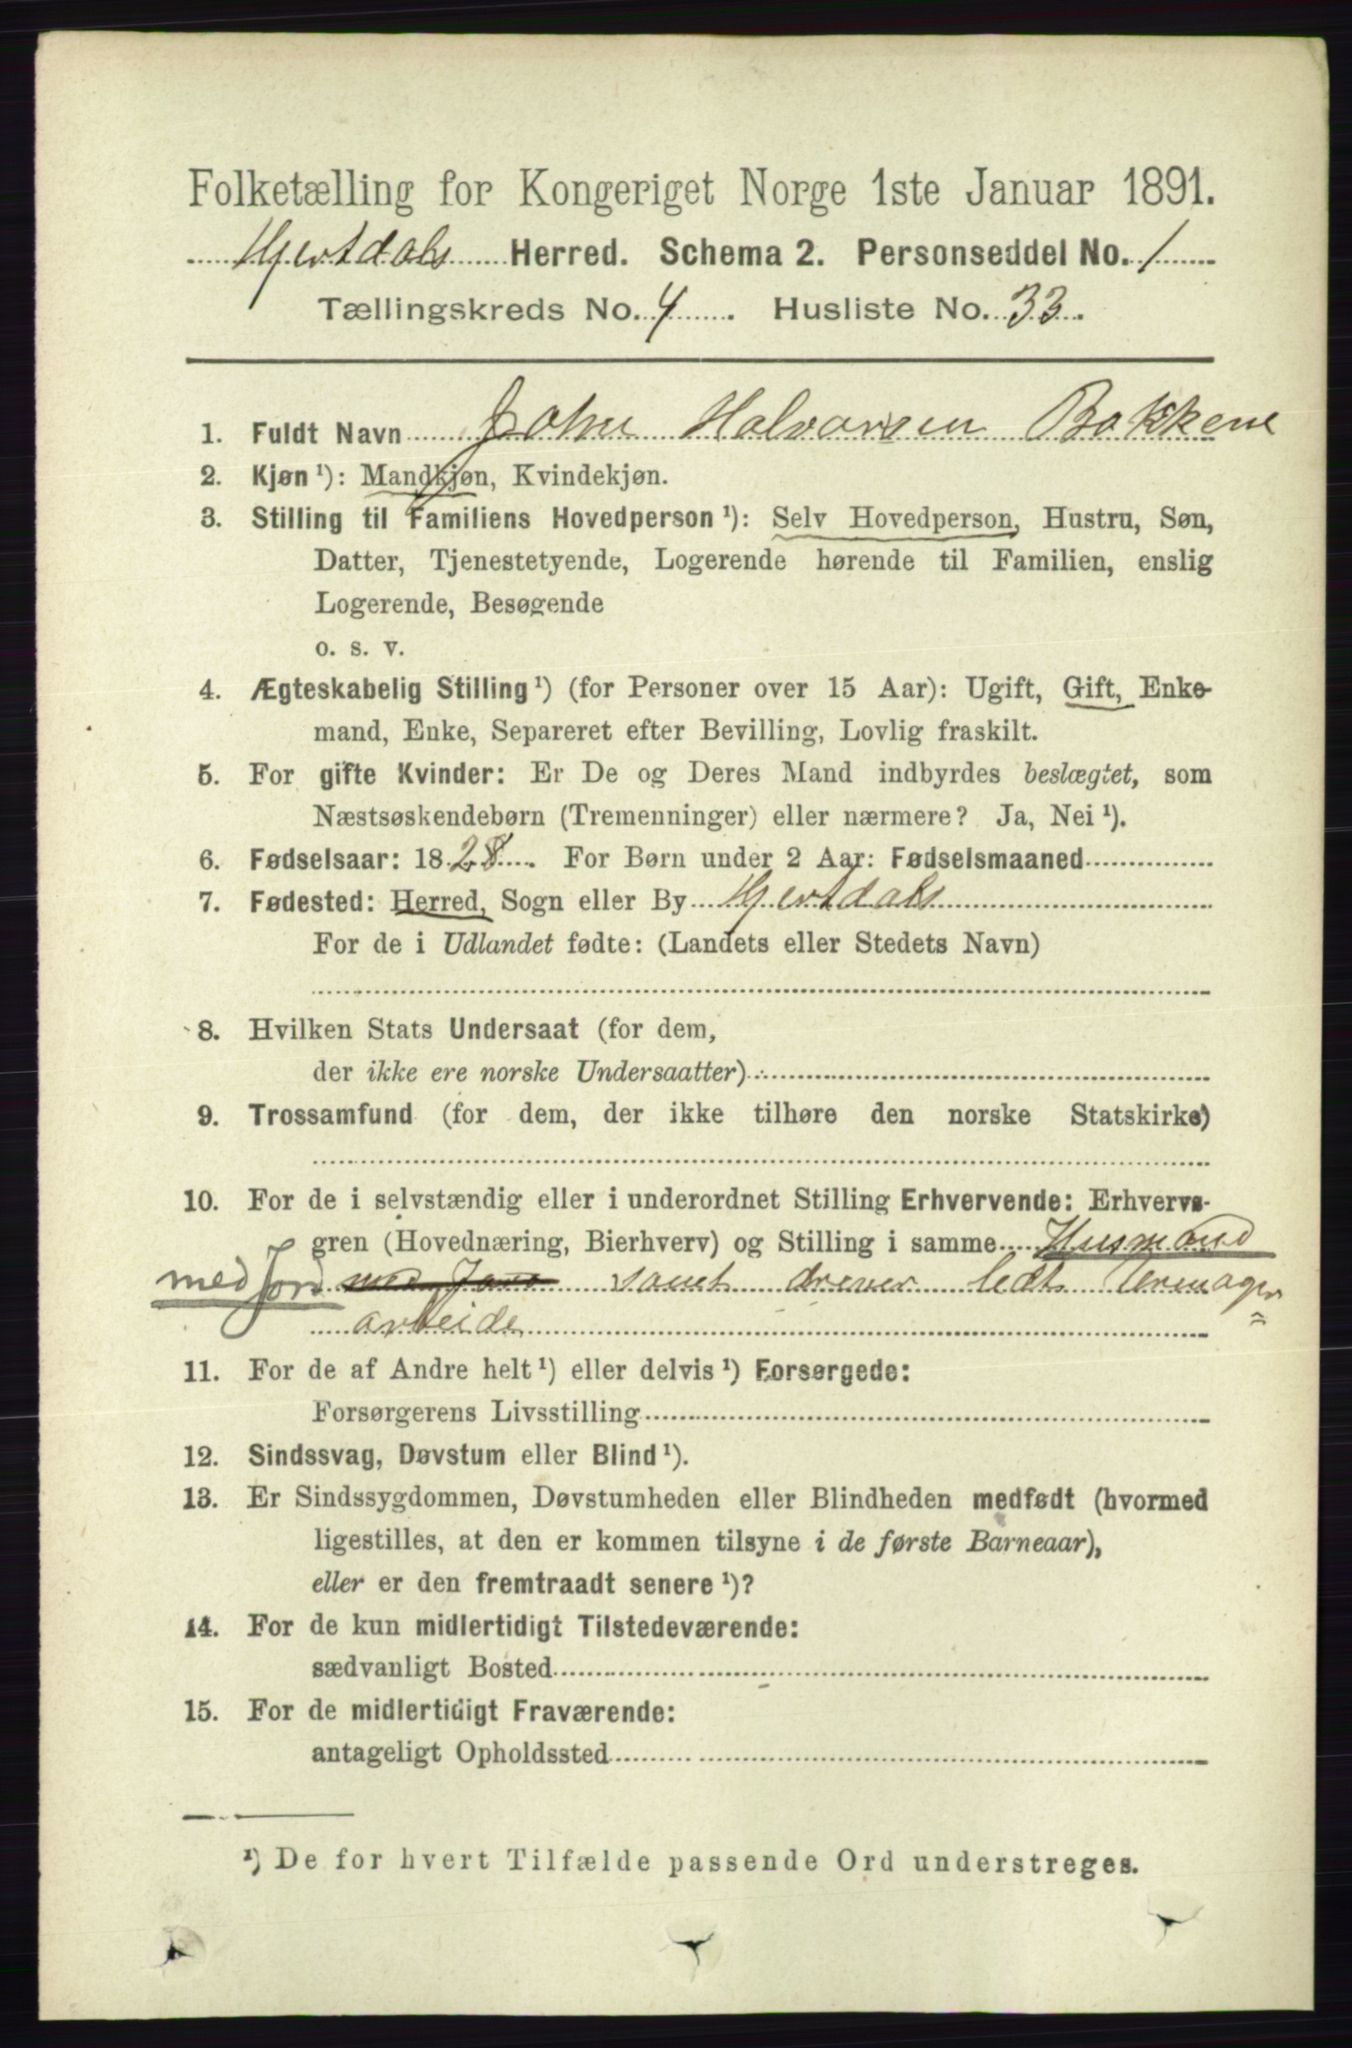 Folketælling for Kongeriget Norge 1ste Januar 1891.
Hjertdals Herred. Schema 2. Personseddel No. 1
Tællingskreds No. 4. Husliste No. 33.
1. Fuldt Navn John Halvorsen Bakkene
2. Kjøn ¹): Mandkjøn, Kvindekjøn.
3. Stilling til Familiens Hovedperson ¹): Selv Hovedperson, Hustru, Søn,
Datter, Tjenestetyende, Logerende hørende til Familien, enslig
Logerende, Besøgende
o. s. v.
4. Ægteskabelig Stilling ¹) (for Personer over 15 Aar): Ugift, Gift, Enke-
mand, Enke, Separeret efter Bevilling, Lovlig fraskilt.
5. For gifte Kvinder: Er De og Deres Mand indbyrdes beslægtet, som
Næstsøskendebørn (Tremenninger) eller nærmere? Ja, Nei ¹).
6. Fødselsaar: 1828. For Børn under 2 Aar: Fødselsmaaned
7. Fødested: Herred, Sogn eller By Hjertdals
For de i Udlandet fødte: (Landets eller Stedets Navn)
8. Hvilken Stats Undersaat (for dem,
der ikke ere norske Undersaatter)
9. Trossamfund (for dem, der ikke tilhøre den norske Statskirke)
10. For de i selvstændig eller i underordnet Stilling Erhvervende: Erhvervs-
gren (Hovednæring, Bierhverv) og Stilling i samme Husmand
med Jord med Jord samt drever ledt
arbeide
11. For de af Andre helt ¹) eller delvis ¹) Forsørgede:
Forsørgerens Livsstilling
12. Sindssvag, Døvstum eller Blind ¹).
13. Er Sindssygdommen, Døvstumheden eller Blindheden medfødt (hvormed
ligestilles, at den er kommen tilsyne i de første Barneaar),
eller er den fremtraadt senere ¹)?
14. For de kun midlertidigt Tilstedeværende:
sædvanligt Bosted
15. For de midlertidigt Fraværende:
antageligt Opholdssted
¹) De for hvert Tilfælde passende Ord understreges.